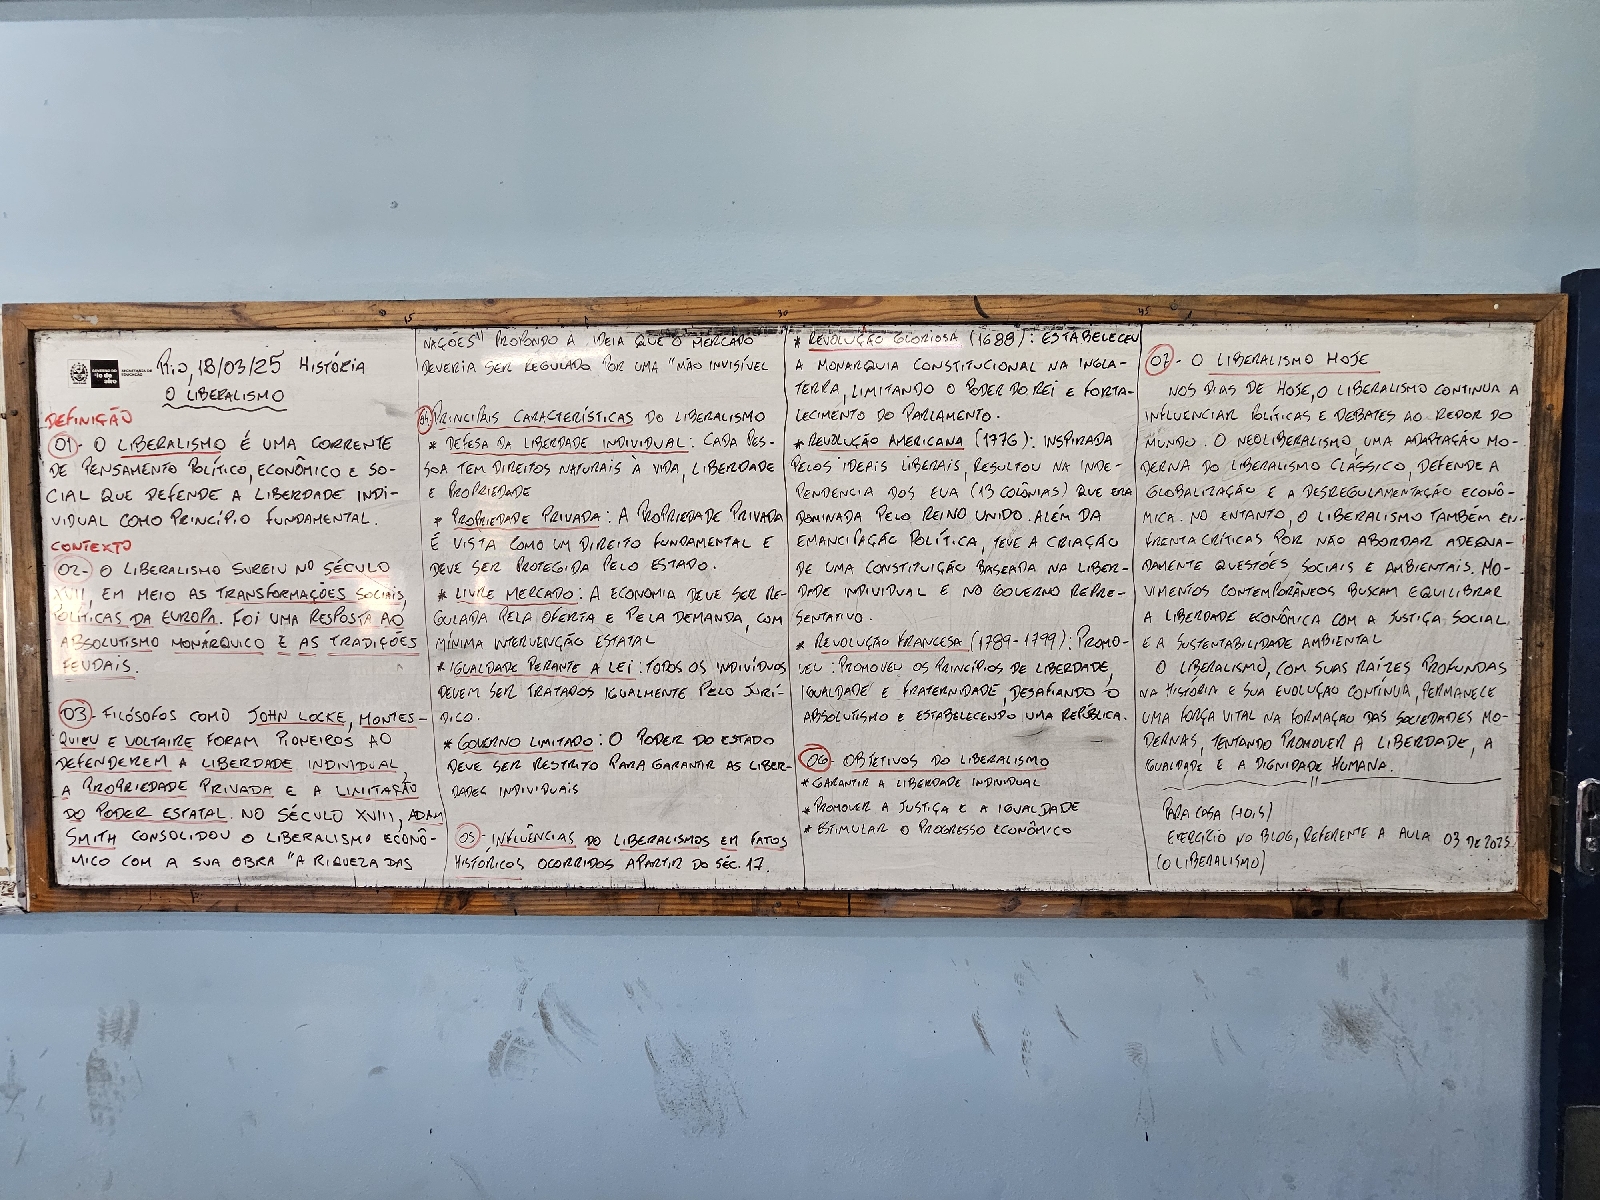 GOVERNO DO
rio de
SECRETARIA DE
EDUCAÇÃO
Rio, 18/03/25 HISTÓRIA
O LIBERALISMO
DEFINIÇÃO
01- O LIBERALISMO É UMA CORRENTE
DE PENSAMENTO POLÍTICO, ECONÔMICO E SO-
CIAL QUE DEFENDE A LIBERDADE INDI-
VIDUAL COMO PRINCÍPIO FUNDAMENTAL.
CONTEXTO
02- O LIBERALISMO SURGIU NO SÉCULO
XVII, EM MEIO AS TRANSFORMAÇÕES SOCIAIS,
POLÍTICAS DA EUROPA. FOI UMA RESPOSTA AO
ABSOLUTISMO MONÁRQUICO E AS TRADIÇÕES
FEUDAIS.
03- FILÓSOFOS COMO JOHN LOCKE, MONTES-
QUIEU E VOLTAIRE FORAM PIONEIROS AO
DEFENDEREM A LIBERDADE INDIVIDUAL,
A PROPRIEDADE PRIVADA E A LIMITAÇÃO
DO PODER ESTATAL. NO SÉCULO XVIII, ADAM
SMITH CONSOLIDOU O LIBERALISMO ECONÔ-
MICO COM A SUA OBRA "A RIQUEZA DAS
NAÇÕES" PROPONDO A IDEIA QUE O MERCADO
DEVERIA SER REGULADO POR UMA "MÃO INVISÍVEL
04 PRINCIPAIS CARACTERÍSTICAS DO LIBERALISMO
* DEFESA DA LIBERDADE INDIVIDUAL: CADA PES-
SOA TEM DIREITOS NATURAIS À VIDA, LIBERDADE
E PROPRIEDADE
* PROPRIEDADE PRIVADA: A PROPRIEDADE PRIVADA
É VISTA COMO UM DIREITO FUNDAMENTAL E
DEVE SER PROTEGIDA PELO ESTADO.
* LIVRE MERCADO: A ECONOMIA DEVE SER RE-
GULADA PELA OFERTA E PELA DEMANDA, COM
MÍNIMA INTERVENÇÃO ESTATAL
* IGUALDADE PERANTE A LEI: TODOS OS INDIVÍDUOS
DEVEM SER TRATADOS IGUALMENTE PELO JURÍ-
DICO.
* GOVERNO LIMITADO: O PODER DO ESTADO
DEVE SER RESTRITO PARA GARANTIR AS LIBER-
DADES INDIVIDUAIS
05- INFLUÊNCIAS DO LIBERALISMOS EM FATOS
HISTÓRICOS OCORRIDOS APARTIR DO SÉC. 17.
* REVOLUÇÃO GLORIOSA (1688): ESTABELECEU
A MONARQUIA CONSTITUCIONAL NA INGLA-
TERRA, LIMITANDO O PODER DO REI E FORTA-
LECIMENTO DO PARLAMENTO.
* REVOLUÇÃO AMERICANA (1776): INSPIRADA
PELOS IDEAIS LIBERAIS, RESULTOU NA INDE-
PENDENCIA DOS EUA (13 COLÔNIAS) QUE ERA
DOMINADA PELO REINO UNIDO. ALÉM DA
EMANCIPAÇÃO POLÍTICA, TEVE A CRIAÇÃO
DE UMA CONSTITUIÇÃO BASEADA NA LIBER-
DADE INDIVIDUAL E NO GOVERNO REPRE-
SENTATIVO.
* REVOLUÇÃO FRANCESA (1789-1799): PROMO-
VEU: PROMOVEU OS PRINCÍPIOS DE LIBERDADE,
IGUALDADE E FRATERNIDADE, DESAFIANDO O
ABSOLUTISMO E ESTABELECENDO UMA REPÚBLICA.
06- OBJETIVOS DO LIBERALISMO
* GARANTIR A LIBERDADE INDIVIDUAL
* PROMOVER A JUSTIÇA E A IGUALDADE
* ESTIMULAR O PROGRESSO ECONÔMICO
07- O LIBERALISMO HOJE
NOS DIAS DE HOJE, O LIBERALISMO CONTINUA A
INFLUENCIAR POLÍTICAS E DEBATES AO REDOR DO
MUNDO. O NEOLIBERALISMO, UMA ADAPTAÇÃO MO-
DERNA DO LIBERALISMO CLÁSSICO, DEFENDE A
GLOBALIZAÇÃO E A DESREGULAMENTAÇÃO ECONÔ-
MICA. NO ENTANTO, O LIBERALISMO TAMBÉM EN-
FRENTA CRÍTICAS POR NÃO ABORDAR ADEQUA-
DAMENTE QUESTÕES SOCIAIS E AMBIENTAIS. MO-
VIMENTOS CONTEMPORÂNEOS BUSCAM EQUILIBRAR
A LIBERDADE ECONÔMICA COM A JUSTIÇA SOCIAL
E A SUSTENTABILIDADE AMBIENTAL
O LIBERALISMO, COM SUAS RAÍZES PROFUNDAS
NA HISTÓRIA E SUA EVOLUÇÃO CONTÍNUA, PERMANECE
UMA FORÇA VITAL NA FORMAÇÃO DAS SOCIEDADES MO-
DERNAS, TENTANDO PROMOVER A LIBERDADE, A
IGUALDADE E A DIGNIDADE HUMANA.
PARA CASA
EXERCÍCIO NO BLOG, REFERENTE A AULA 03 DE 2025
(O LIBERALISMO)